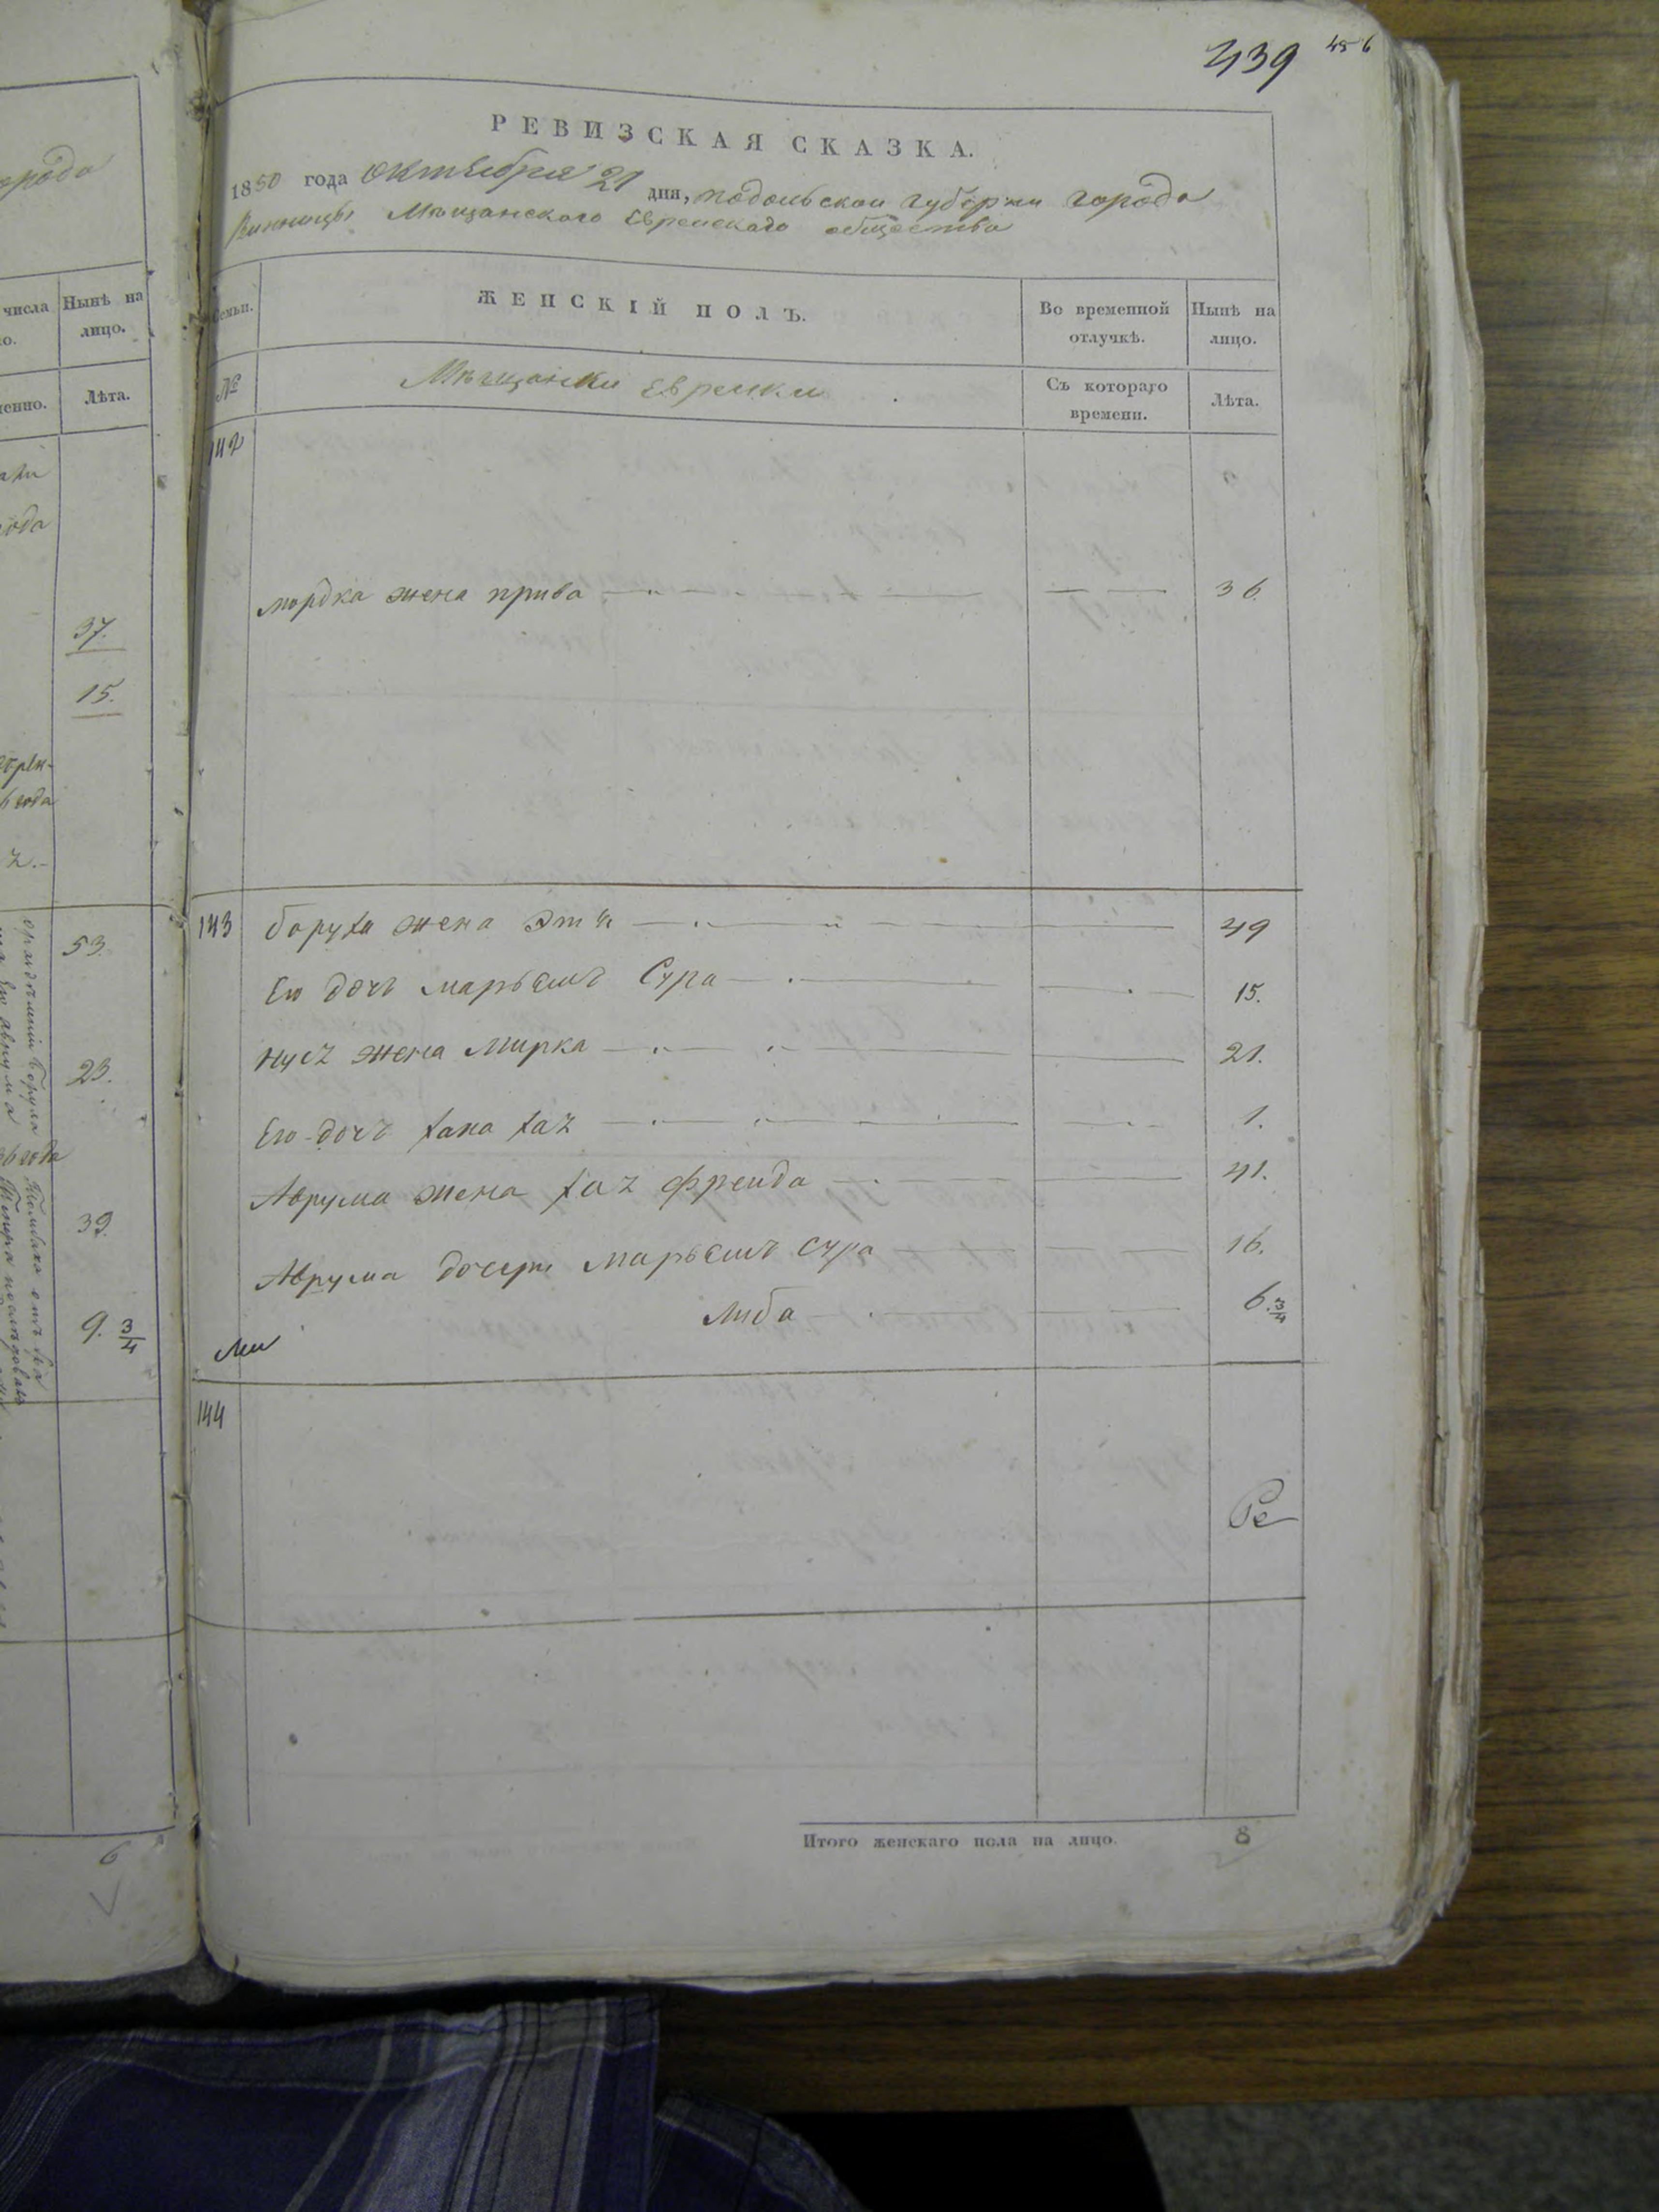 439 456
РЕВИЗСКАЯ СКАЗКА.
1850 года октября 21 дня, подольской губернии города
Винницы Мѣщанского Еврейскаго общества
Семьи. ЖЕНСКІЙ ПОЛЪ. Во временной отлучкѣ. Нынѣ на лицо.
№ Мѣщанки Еврейки Съ котораго времени. Лѣта.
142
мордка жена прива 36
143 боруха жена Этя 49
Его дочь марьемъ Сура 15.
нусъ жена Мирка 21.
Его дочъ хана хаъ 1.
Аврума жена хаъ фрейда 41.
Аврума дочери марьемъ сура 16.
Либа 6. 3/4
144
Ре
Итого женскаго пола на лицо. 8
города
числа Нынѣ на
лицо.
Лѣта.
года
37.
15.
53.
23.
39.
9. 3/4
6